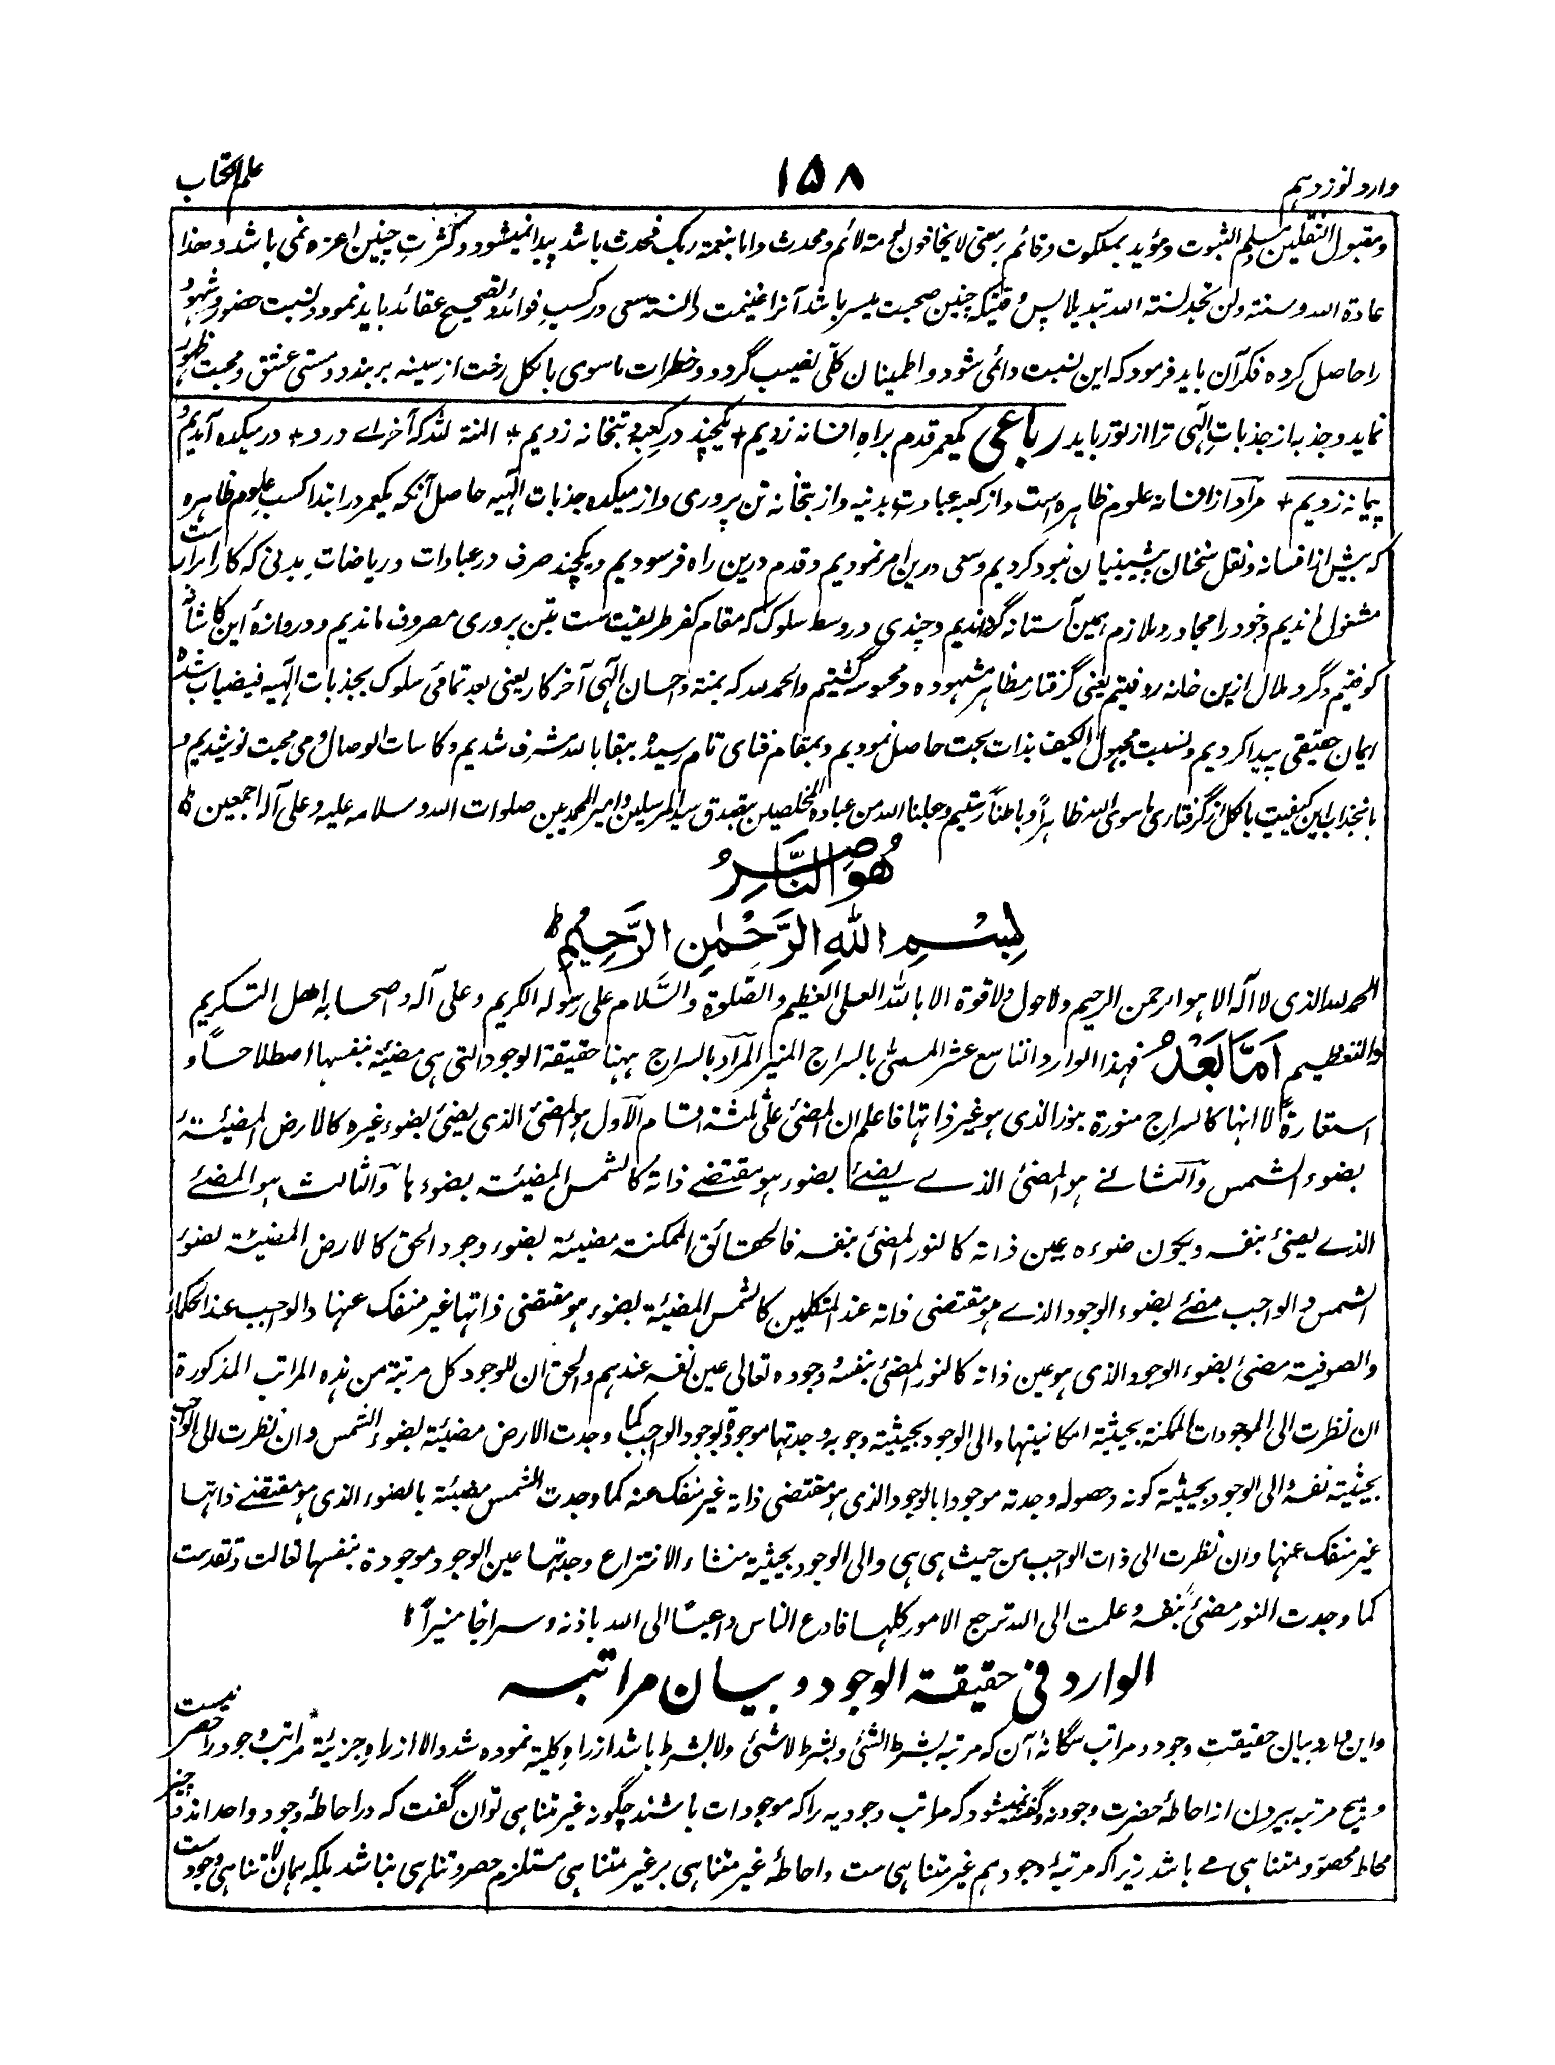 وارد نوزدهم
۱۵۸
علم الکتاب
و مقبول الثقلین مسلم الثبوت و مؤید بملکوت و قائم بر معنی لا یخافون لومة لائم و محدث واما بنعمة ربک فحدث باشد پیدا نمیشود و کثرتِ چنین اعزه نمی باشد و هذا
عادة الله و سنته ولن تجد لسنة الله تبدیلا پس وقتیکه چنین صحبت میسر باشد آنرا غنیمت دانسته سعی در کسبِ فوائد و تصحیح عقائد باید نمود و نسبت حضور و شهود
را حاصل کرده فکر آن باید فرمود که این نسبت دائمی شود و اطمینان کلّی نصیب گردد و خطرات ماسوی بالکل رخت از سینه بر بندد و مستی عشق و محبت ظهور
نماید و جذبه از جذباتِ الٰهی ترا از تو رباید رباعی یکعمر قدم براهِ افسانه زدیم + یکچند در کعبه و بتخانه زدیم + المنة لله که آخر اے درد + در میکده آمدیم و
پیمانه زدیم + مراد از افسانه علوم ظاهره است و از کعبه عبادت بدنیه و از بتخانه تن پروری و از میکده جذبات الٰهیه حاصل آنکه یکعمر در ابتدا کسب علوم ظاهره
که بیش از افسانه و نقل سخنان پیشینیان نبود کردیم و سعی درین امر نمودیم و قدم درین راه فرسودیم و یکچند صرف در عبادات و ریاضات بدنی که کار ابرار است
مشغول ماندیم و خود را مجاور و ملازم همین آستانه گردانیدیم و چندی در وسط سلوک که مقام کفر طریقیت ست بتن پروری مصروف ماندیم و دروازهٔ این کاشانه
کوفتیم و گرد ملال ازین خانه روفتیم یعنی گرفتار مظاهر مشهوده و محسوسه گشتیم والحمد لله که بمنة و احسان الٰهی آخر کار یعنی بعد تمامئ سلوک بجذبات الٰهیه فیضیاب شده
ایمان حقیقی پیدا کردیم و نسبت مجهول الکیف بذات بحت حاصل نمودیم و بمقام فنای تام رسیده ببقا بالله مشرف شدیم و کاسات الوصال و می محبت نوشیدیم و
بانجذاب این کیفیت بالکل از گرفتاری ماسوی الله ظاهراً و باطناً رستیم وجعلنا الله من عباده المخلصین بتصدق سید المرسلین وامیر المحمدیین صلوات الله وسلامه علیه وعلی آله اجمعین
هُوَ النَّاصِرُ
بِسْمِ اللهِ الرَّحْمٰنِ الرَّحِیْمِ
الحمد لله الذی لا آله الا هو الرحمن الرحیم ولا حول ولا قوة الا بالله العلی العظیم والصَّلوة والسَّلام علی رسوله الکریم وعلی آله واصحابه اهل التکریم
والتعظیم اَمَّا بَعْدُ فهذا الوارد التاسع عشر المسمّٰی بالسراج المنیر المراد بالسراج ههنا حقیقة الوجود التی هی مضیئة بنفسها اصطلاحاً و
استعارةً لا انها کالسراج منورة بنور الذی هو غیر ذاتها فاعلم ان المضئ علٰی ثلثة اقسام الاول هو المضئ الذی یضئ بضوء غیره کالارض المضیئة
بضوء الشمس والثانی هو المضئ الذے یضئ بضوء هو مقتضے ذاته کالشمس المضیئة بضوءها والثالث هو المضئ
الذے یضئ بنفسه ویکون ضوءه عین ذاته کالنور المضئ بنفسه فالحقائق الممکنة مضیئة بضوء وجود الحق کالارض المضیئة بضوء
الشمس والواجب مضئ بضوء الوجود الذے هو مقتضی ذاته عند المتکلمین کالشمس المضیئة بضوء هو مقتضی ذاتها غیر منفک عنها والواجب عند الحکماء
والصوفیة مضئ بضوء الوجود الذی هو عین ذاته کالنور المضئ بنفسه ووجوده تعالی عین نفسه عندهم والحق ان للوجود کل مرتبة من هذه المراتب المذکورة
ان نظرت الی الموجودات الممکنة بحیثیة امکانیتها والی الوجود بحیثیة وجوبه وجدتها موجودة بوجود الواجب کما وجدت الارض مضیئة بضوء الشمس وان نظرت الی الواجب
بحیثیة نفسه والی الوجود بحیثیة کونه وحصوله وجدته موجودا بالوجود الذی هو مقتضی ذاته غیر منفک عنه کما وجدت الشمس مضیئة بالضوء الذی هو مقتضے ذاتها
غیر منفک عنها وان نظرت الی ذات الواجب من حیث هی هی والی الوجود بحیثیة منشاء الانتزاع وجدتها عین الوجود موجودة بنفسها تعالت وتقدست
کما وجدت النور مضئ بنفسه وعلمت الی الله ترجع الامور کلها فادع الناس داعیا الی الله باذنه وسراجا منیراً
الوارد فی حقیقة الوجود و بیان مراتبه
و این وارد بیان حقیقتِ وجود و مراتب سگانهٔ آن که مرتبه بشرط الشئ و بشرط لا شئ و لا بشرط باشد از راهِ کلیة نموده شد والا از راهِ جزئیة مراتب وجود را حصر نیست
و هیچ مرتبه بیرون از احاطهٔ حضرت وجود نه و گفته نمیشود که مراتب وجودیه را که موجودات باشند چگونه غیر متناهی توان گفت که در احاطهٔ وجود واحد اند و چیز
محاط محصور و متناهی مے باشد زیرا که مرتبهٔ وجود هم غیر متناهی ست و احاطهٔ غیر متناهی بر غیر متناهی مستلزم حصر و تناهی نباشد بلکه همان لا تناهی وجود ست